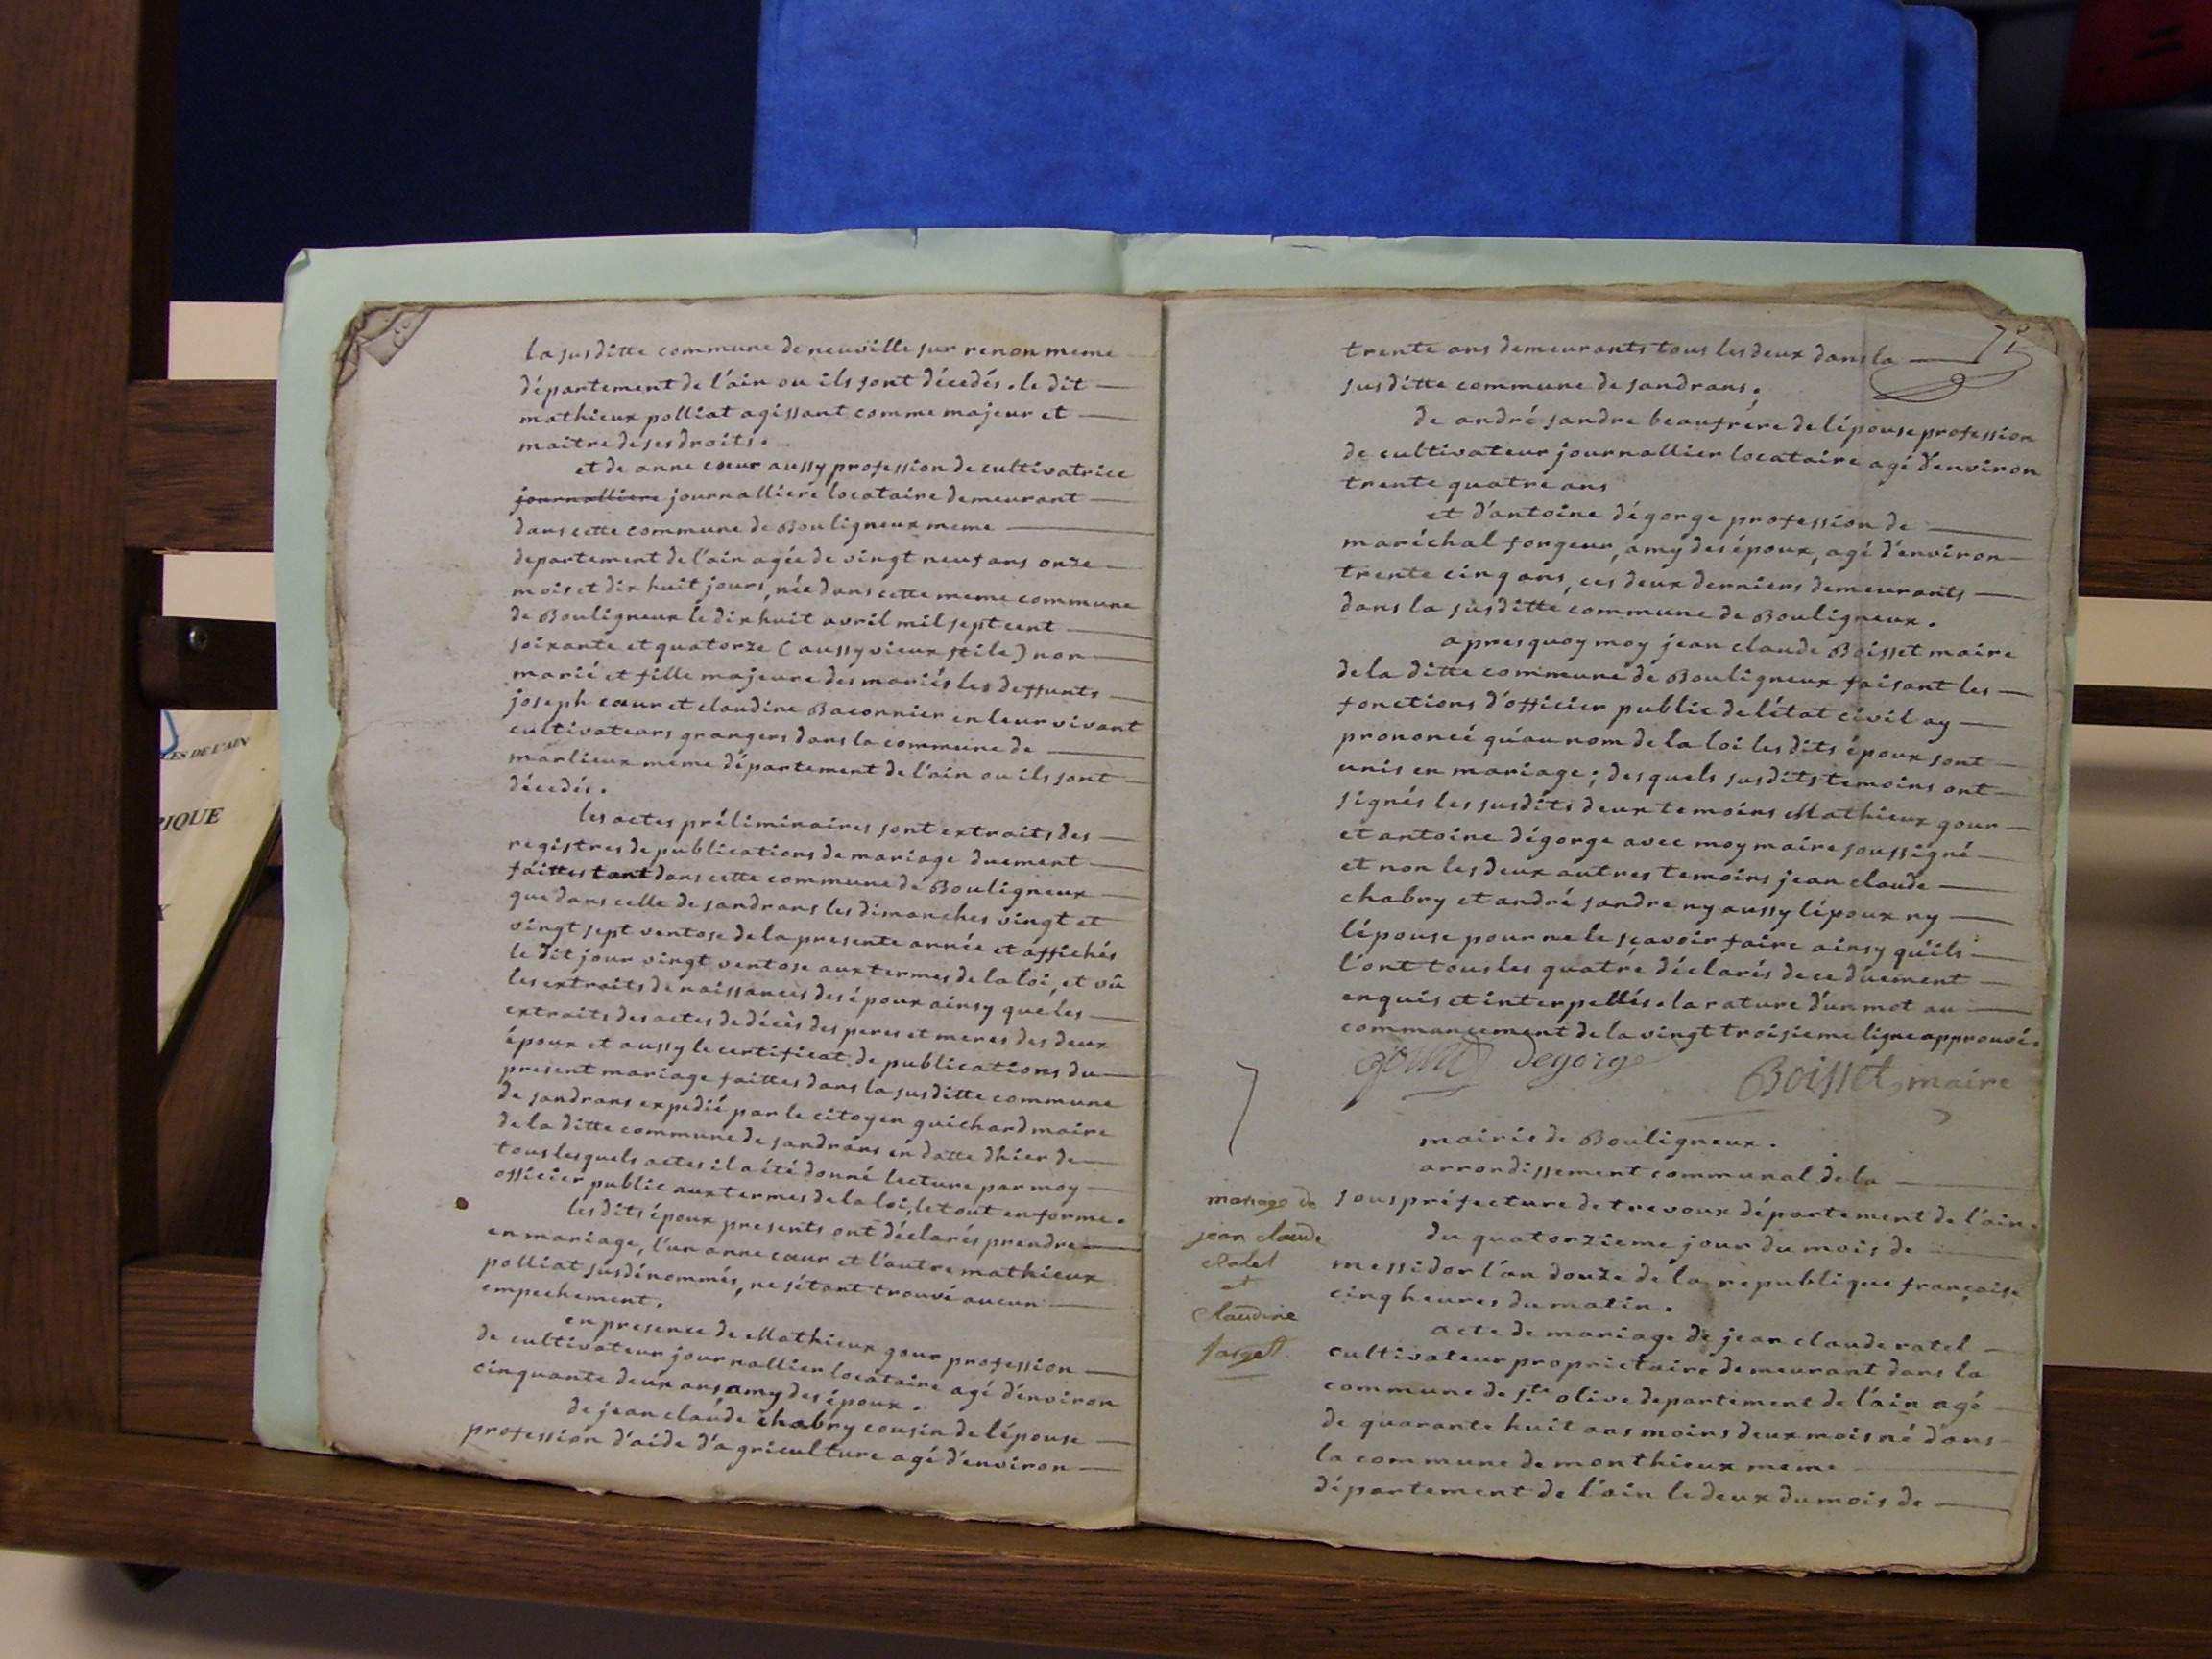 la susditte commune de neuville sur renon meme
département de l'ain ou ils sont décedés. le dit
mathieux polliat agissant comme majeur et
maitre de ses droits.
et de anne cœur aussy profession de cultivatrice
journalliere journalliere locataire demeurant
dans cette commune de Bouligneux meme
departement de l'ain agée de vingt neuf ans onze
mois et dix huit jours, née dans cette meme commune
de Bouligneux le dix huit avril mil sept cent
soixante et quatorze (aussy vieux stile) non
marié et fille majeure des mariés les deffunts
joseph cœur et claudine Baconnier en leur vivant
cultivateurs grangers dans la commune de
marlieux meme département de l'ain ou ils sont
décedés.
les actes préliminaires sont extraits des
registres de publications de mariage duement
faittes tant dans cette commune de Bouligneux
que dans celle de sandrans les dimanches vingt et
vingt sept ventose de la presente année et affichés
le dit jour vingt ventose aux termes de la loi, et vû
les extraits de naissances des époux ainsy que les
extraits des actes de décès des peres et meres des deux
époux et aussy le certificat de publications du
present mariage faittes dans la susditte commune
de sandrans expedié par le citoyen guichard maire
de la ditte commune de sandrans en datte dhier de
tous lesquels actes il a été donné lecture par moy
officier public aux termes de la loi, le tout en forme.
les dits époux presents ont déclarés prendre
en mariage, l'un anne cœur et l'autre mathieux
polliat susdénommés, ne s'étant trouvé aucun
empechement.
en presence de Mathieux gour profession
de cultivateur journallier locataire agé d'environ
cinquante deux ans, amy des époux.
de jean claude chabry cousin de l'épouse
profession d'aide d'agriculture agé d'environ
trente ans demeurants tous les deux dans la
susditte commune de sandrans.
de andré sandre beaufrére de lépouse profession
de cultivateur journallier locataire agé d'environ
trente quatre ans
et d'antoine dégorge profession de
maréchal forgeur, amy des époux, agé d'environ
trente cinq ans, ces deux derniers demeurants
dans la susditte commune de Bouligneux.
apres quoy moy jean claude Boisset maire
de la ditte commune de Bouligneux faisant les
fonctions d'officier public de l'état civil ay
prononcé qu'au nom de la loi les dits époux sont
unis en mariage; des quels susdits temoins ont
signés les susdits deux temoins Mathieux gour
et antoine dégorge avec moy maire soussigné
et non les deux autres temoins jean claude
chabry et andré sandre ny aussy l'époux ny
l'épouse pour ne le sçavoir faire ainsy qu'ils
l'ont tous les quatre déclarés de ce duement
enquis et interpellés. la rature d'un mot au
commancement de la vingt troisieme ligne approuvé.
gour degorge
Boisset maire
mairie de Bouligneux.
arrondissement communal de la
souspréfecture de trevoux département de l'ain.
mariage de
jean claude
Ratel
et
Claudine
farget
du quatorzieme jour du mois de
messidor l'an douze de la république françoise
cinq heures du matin.
acte de mariage de jean claude ratel
cultivateur proprietaire demeurant dans la
commune de ste olive departement de l'ain agé
de quarante huit ans moins deux mois né dans
la commune de monthieux meme
département de l'ain le deux du mois de
ES DE L'AIN
RIQUE